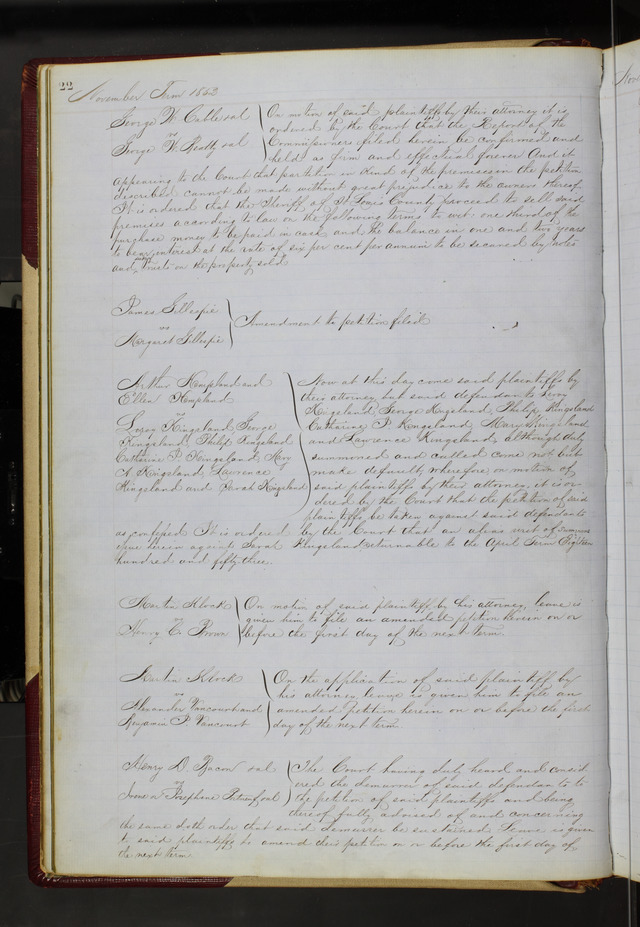 22
November Term 1852
George W. Cable et al
vs
George W. Beatty et al
On motion of said plaintiffs by their attorney it is
ordered by the Court that the Report of the
Commissioners filed herein be confirmed and
held as firm and effectual forever And it
appearing to the Court that partition in kind of the premises in the petition
described cannot be made without great prejudice to the owners thereof
It is ordered that the Sheriff of St Louis County proceed to sell said
premises according to law on the following terms to wit: one third of the
purchase money to be paid in cash and the balance in one and two years
to bear interest at the rate of six per cent per annum to be secured by notes
and Trusts on the property sold
James Gillespie
vs
Margaret Gillespie
Amendment to petition filed
Arthur Kingsland and
Ellen Kingsland
vs
Kingsland George
Kingsland Philip Kingsland
Catharine P Kingsland Mary
A Kingsland Lawrence
Kingsland and Sarah Kingsland
Now at this day come said plaintiffs by
their attorney but said defendants
Kingsland, George Kingsland, Philip Kingsland
Catharine P Kingsland, Mary Kingsland
and Lawrence Kingsland, although duly
summoned and called come not but
make default, wherefore on motion of
said plaintiffs by their attorney, it is or-
dered by the Court that the petition of said
plaintiffs be taken against said defendants
as confessed It is ordered by the Court that an alias writ of summons
issue herein against Sarah Kingsland returnable to the April Term Eighteen
hundred and fifty three.
Martin Klock
vs
Henry T. Brown
On motion of said plaintiff by his attorney, leave is
given him to file an amended petition herein on or
before the first day of the next term.
Martin Klock
vs
Alexander Vancourt and
Benjamin F Vancourt
On the application of said plaintiff by
his attorney leave is given him to file an
amended petition herein on or before the first
day of the next term.
Henry D. Bacon et al
vs
Josephene et al
The Court having duly heard and consid
ered the demurrer of said defendants to
the petition of said plaintiffs and being
thereof fully advised of and concerning
the same doth order that said demurrer be sustained Leave is given
to said plaintiffs to amend their petition on or before the first day of
the next term